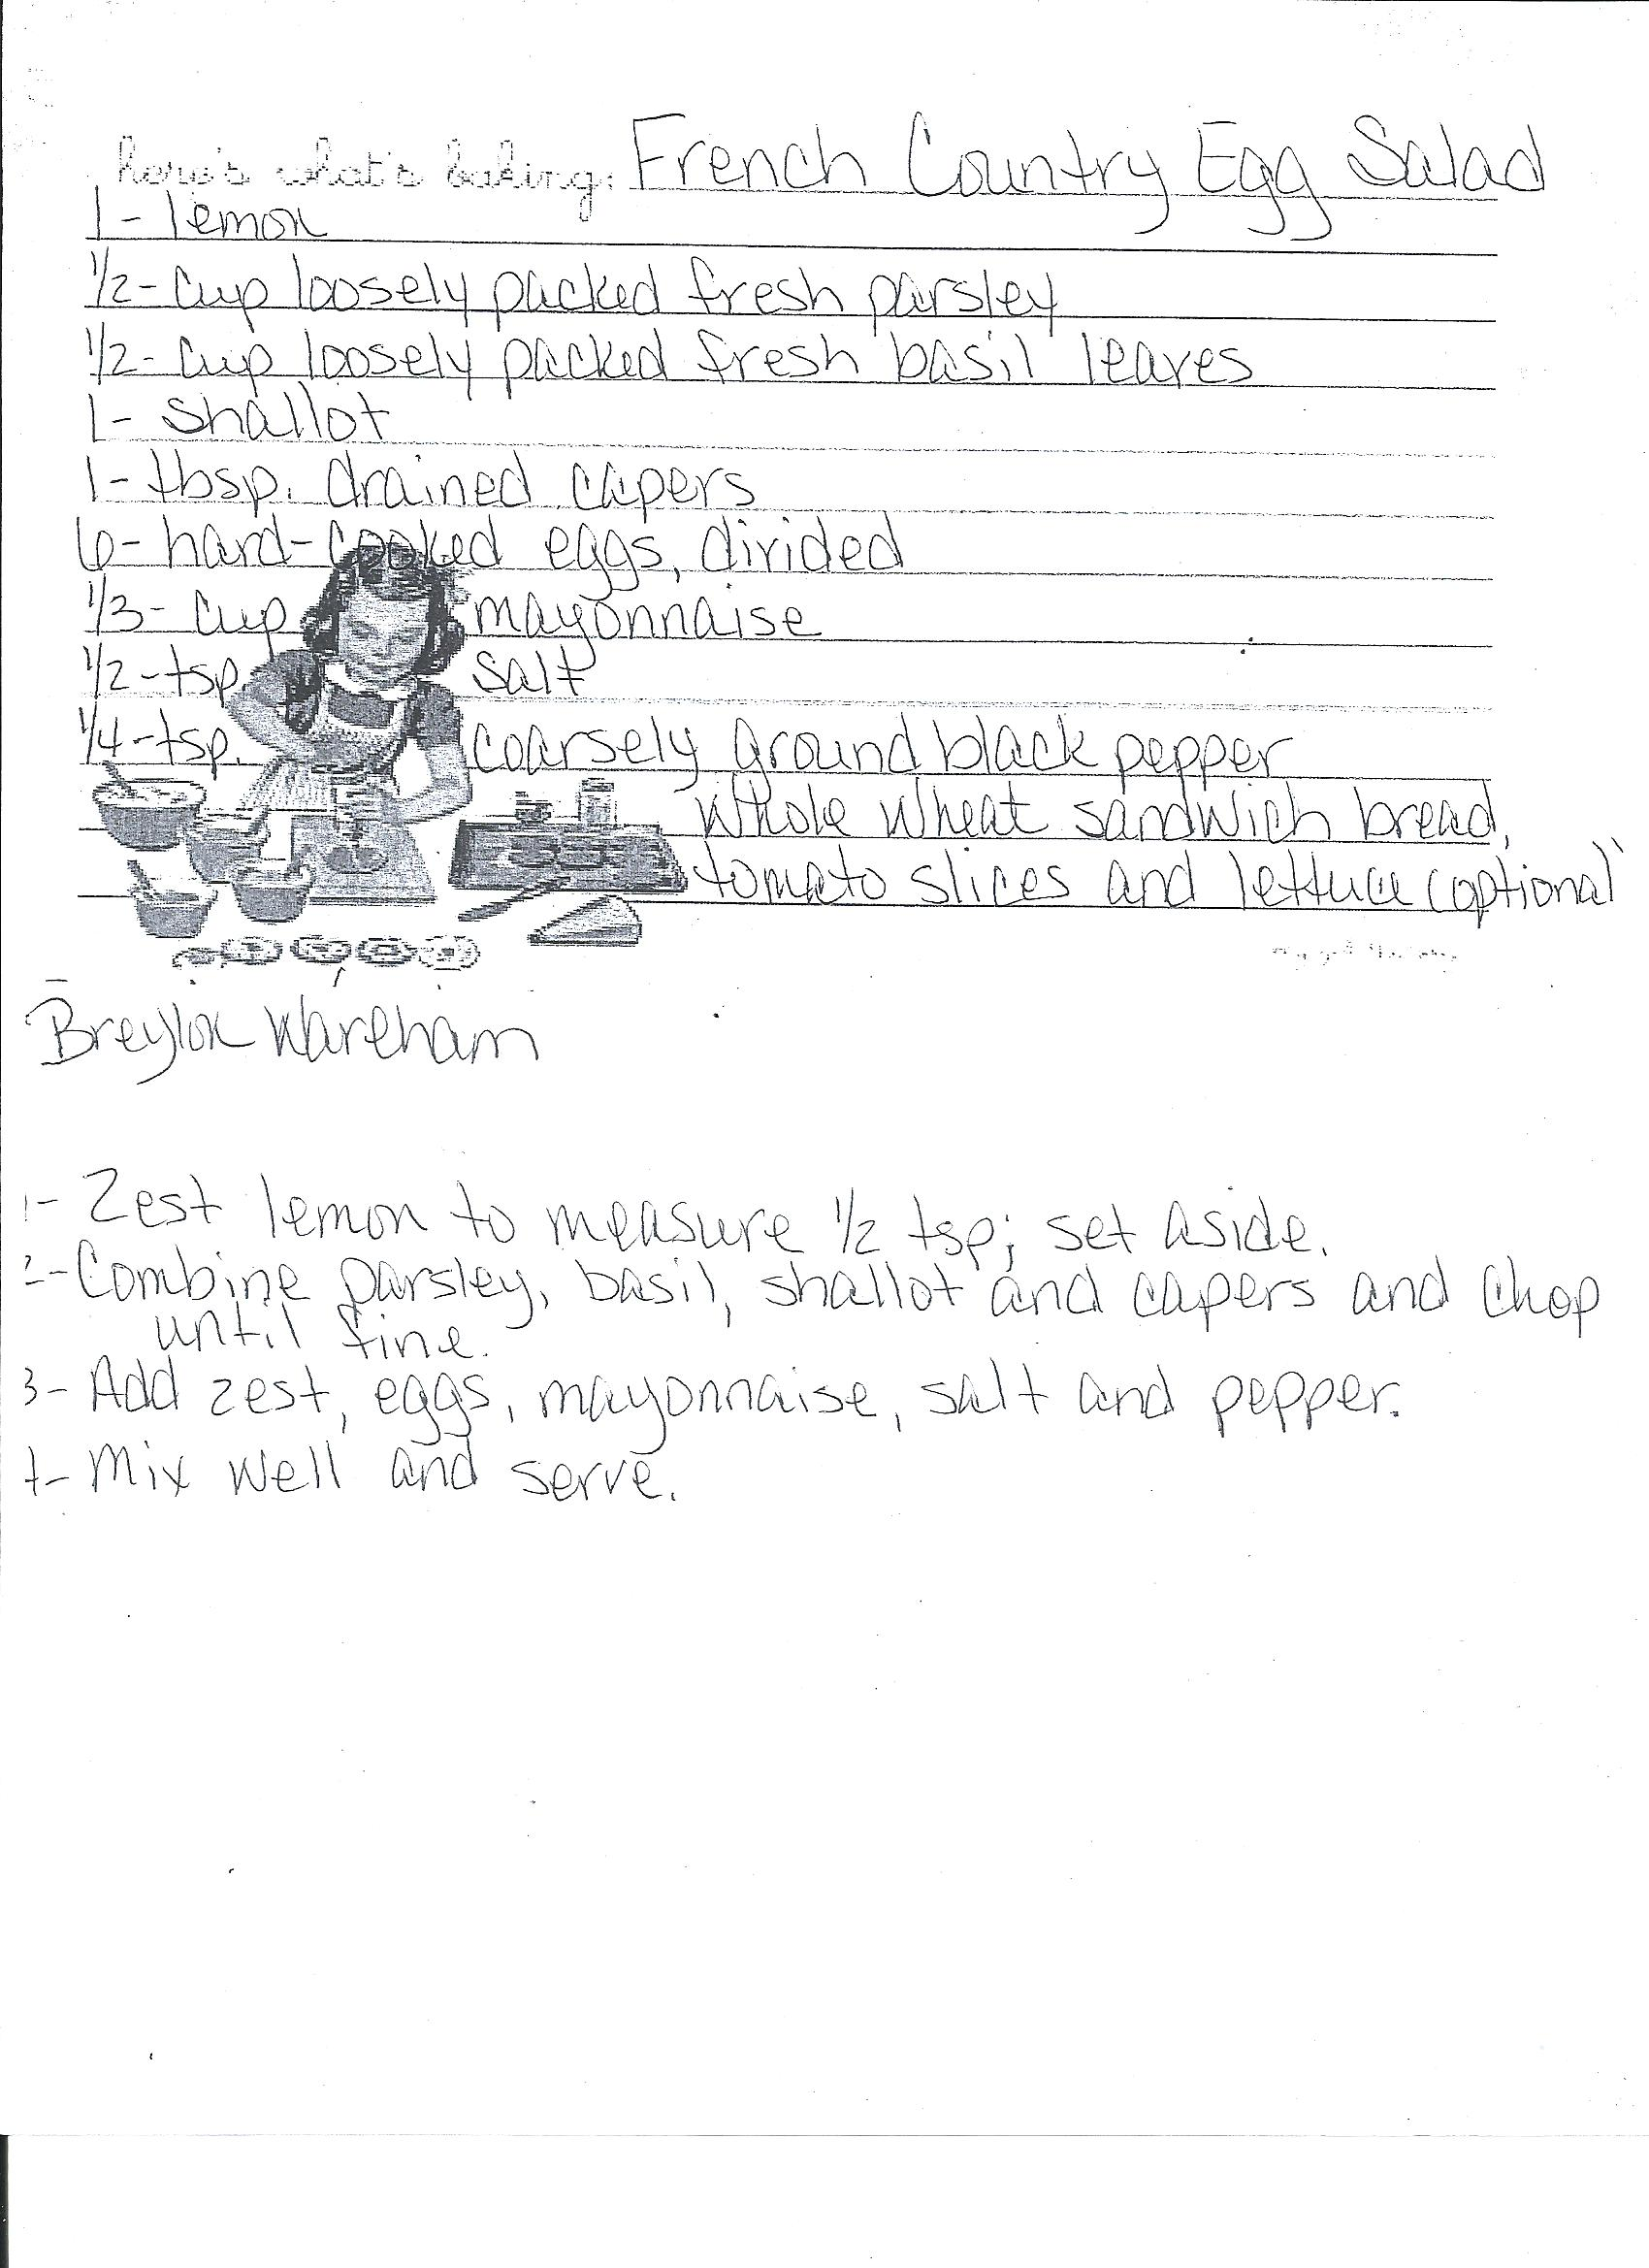 here's what's baking: French Country Egg Salad
1 - lemon
1/2 - cup loosely packed fresh parsley
1/2 - cup loosely packed fresh basil leaves
1 - shallot
1 - tbsp. drained capers
6 - hard-cooked eggs, divided
1/3 - cup mayonnaise
1/2 - tsp. salt
1/4 - tsp. coarsely ground black pepper
Whole wheat sandwich bread,
tomato slices and lettuce (optional)
Wareham
1 - Zest lemon to measure 1/2 tsp; set aside.
2 - Combine parsley, basil, shallot and capers and chop
until fine.
3 - Add zest, eggs, mayonnaise, salt and pepper.
4 - Mix well and serve.